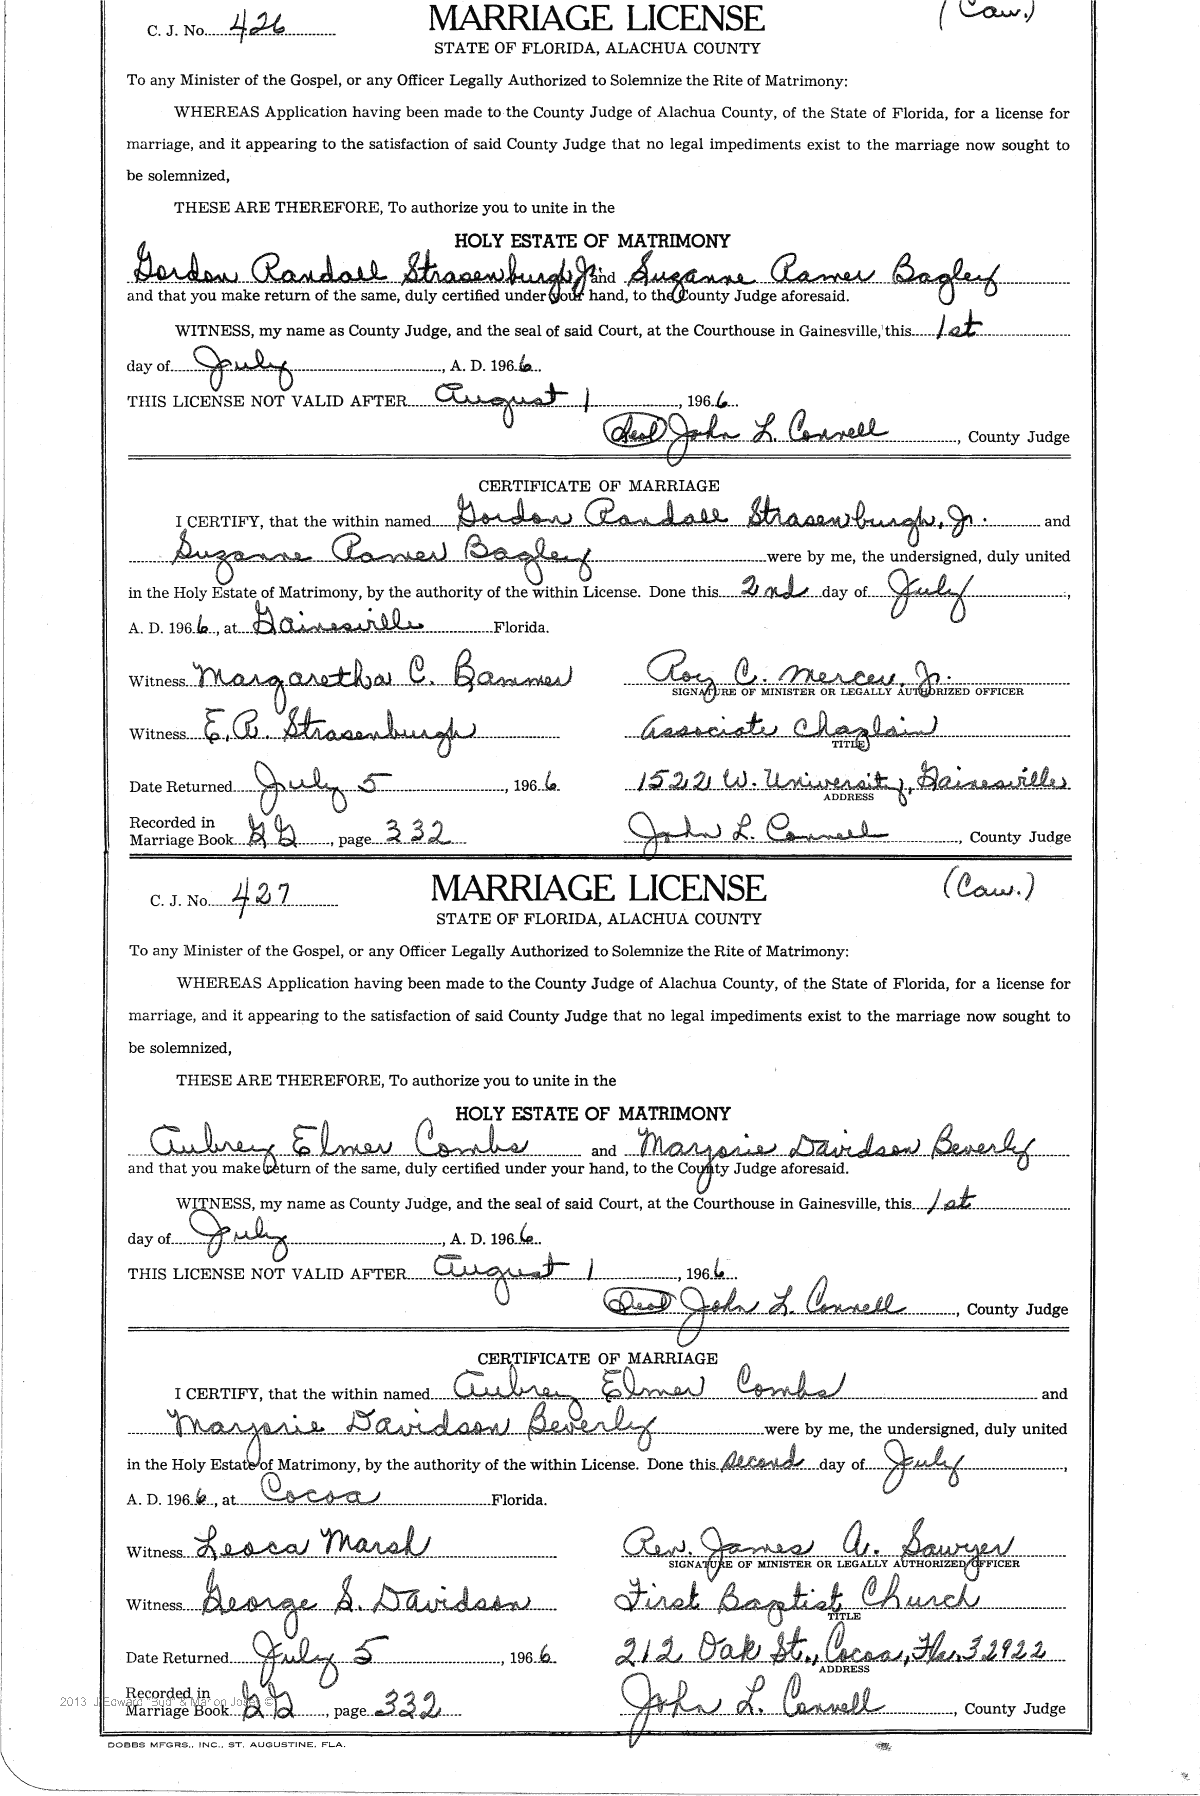 C. J. No. 426 MARRIAGE LICENSE (Caw.)
STATE OF FLORIDA, ALACHUA COUNTY
To any Minister of the Gospel, or any Officer Legally Authorized to Solemnize the Rite of Matrimony:
WHEREAS Application having been made to the County Judge of Alachua County, of the State of Florida, for a license for
marriage, and it appearing to the satisfaction of said County Judge that no legal impediments exist to the marriage now sought to
be solemnized,
THESE ARE THEREFORE, To authorize you to unite in the
HOLY ESTATE OF MATRIMONY
Gordon Randall Strasenburgh Jr. and Suzanne Ramer Bagley
and that you make return of the same, duly certified under your hand, to the County Judge aforesaid.
WITNESS, my name as County Judge, and the seal of said Court, at the Courthouse in Gainesville, this 1st
day of July, A. D. 1966
THIS LICENSE NOT VALID AFTER August 1, 1966
(Seal) John L. Connell, County Judge
CERTIFICATE OF MARRIAGE
I CERTIFY, that the within named Gordon Randall Strasenburgh, Jr. and
Suzanne Ramer Bagley were by me, the undersigned, duly united
in the Holy Estate of Matrimony, by the authority of the within License. Done this 2nd day of July,
A. D. 1966, at Gainesville Florida.
Witness Margaretha C. Bammer Roy C. Mercer, Jr.
SIGNATURE OF MINISTER OR LEGALLY AUTHORIZED OFFICER
Witness E. R. Strasenburgh Associate Chaplain
TITLE
Date Returned July 5, 1966 1522 W. University, Gainesville
ADDRESS
Recorded in
Marriage Book GG, page 332 John L. Connell, County Judge
C. J. No. 427 MARRIAGE LICENSE (Caw.)
STATE OF FLORIDA, ALACHUA COUNTY
To any Minister of the Gospel, or any Officer Legally Authorized to Solemnize the Rite of Matrimony:
WHEREAS Application having been made to the County Judge of Alachua County, of the State of Florida, for a license for
marriage, and it appearing to the satisfaction of said County Judge that no legal impediments exist to the marriage now sought to
be solemnized,
THESE ARE THEREFORE, To authorize you to unite in the
HOLY ESTATE OF MATRIMONY
Aubrey Elmer Combs and Marjorie Davidson Beverly
and that you make return of the same, duly certified under your hand, to the County Judge aforesaid.
WITNESS, my name as County Judge, and the seal of said Court, at the Courthouse in Gainesville, this 1st
day of July, A. D. 1966
THIS LICENSE NOT VALID AFTER August 1, 1966
(Seal) John L. Connell, County Judge
CERTIFICATE OF MARRIAGE
I CERTIFY, that the within named Aubrey Elmer Combs and
Marjorie Davidson Beverly were by me, the undersigned, duly united
in the Holy Estate of Matrimony, by the authority of the within License. Done this second day of July,
A. D. 1966, at Cocoa Florida.
Witness Leoca Marsh Rev. James A. Sawyer
SIGNATURE OF MINISTER OR LEGALLY AUTHORIZED OFFICER
Witness George S. Davidson First Baptist Church
TITLE
Date Returned July 5, 1966 212 Oak St., Cocoa, Fla. 32922
ADDRESS
Recorded in
Marriage Book GG, page 332 John L. Connell, County Judge
DOBBS MFGRS., INC., ST. AUGUSTINE, FLA.